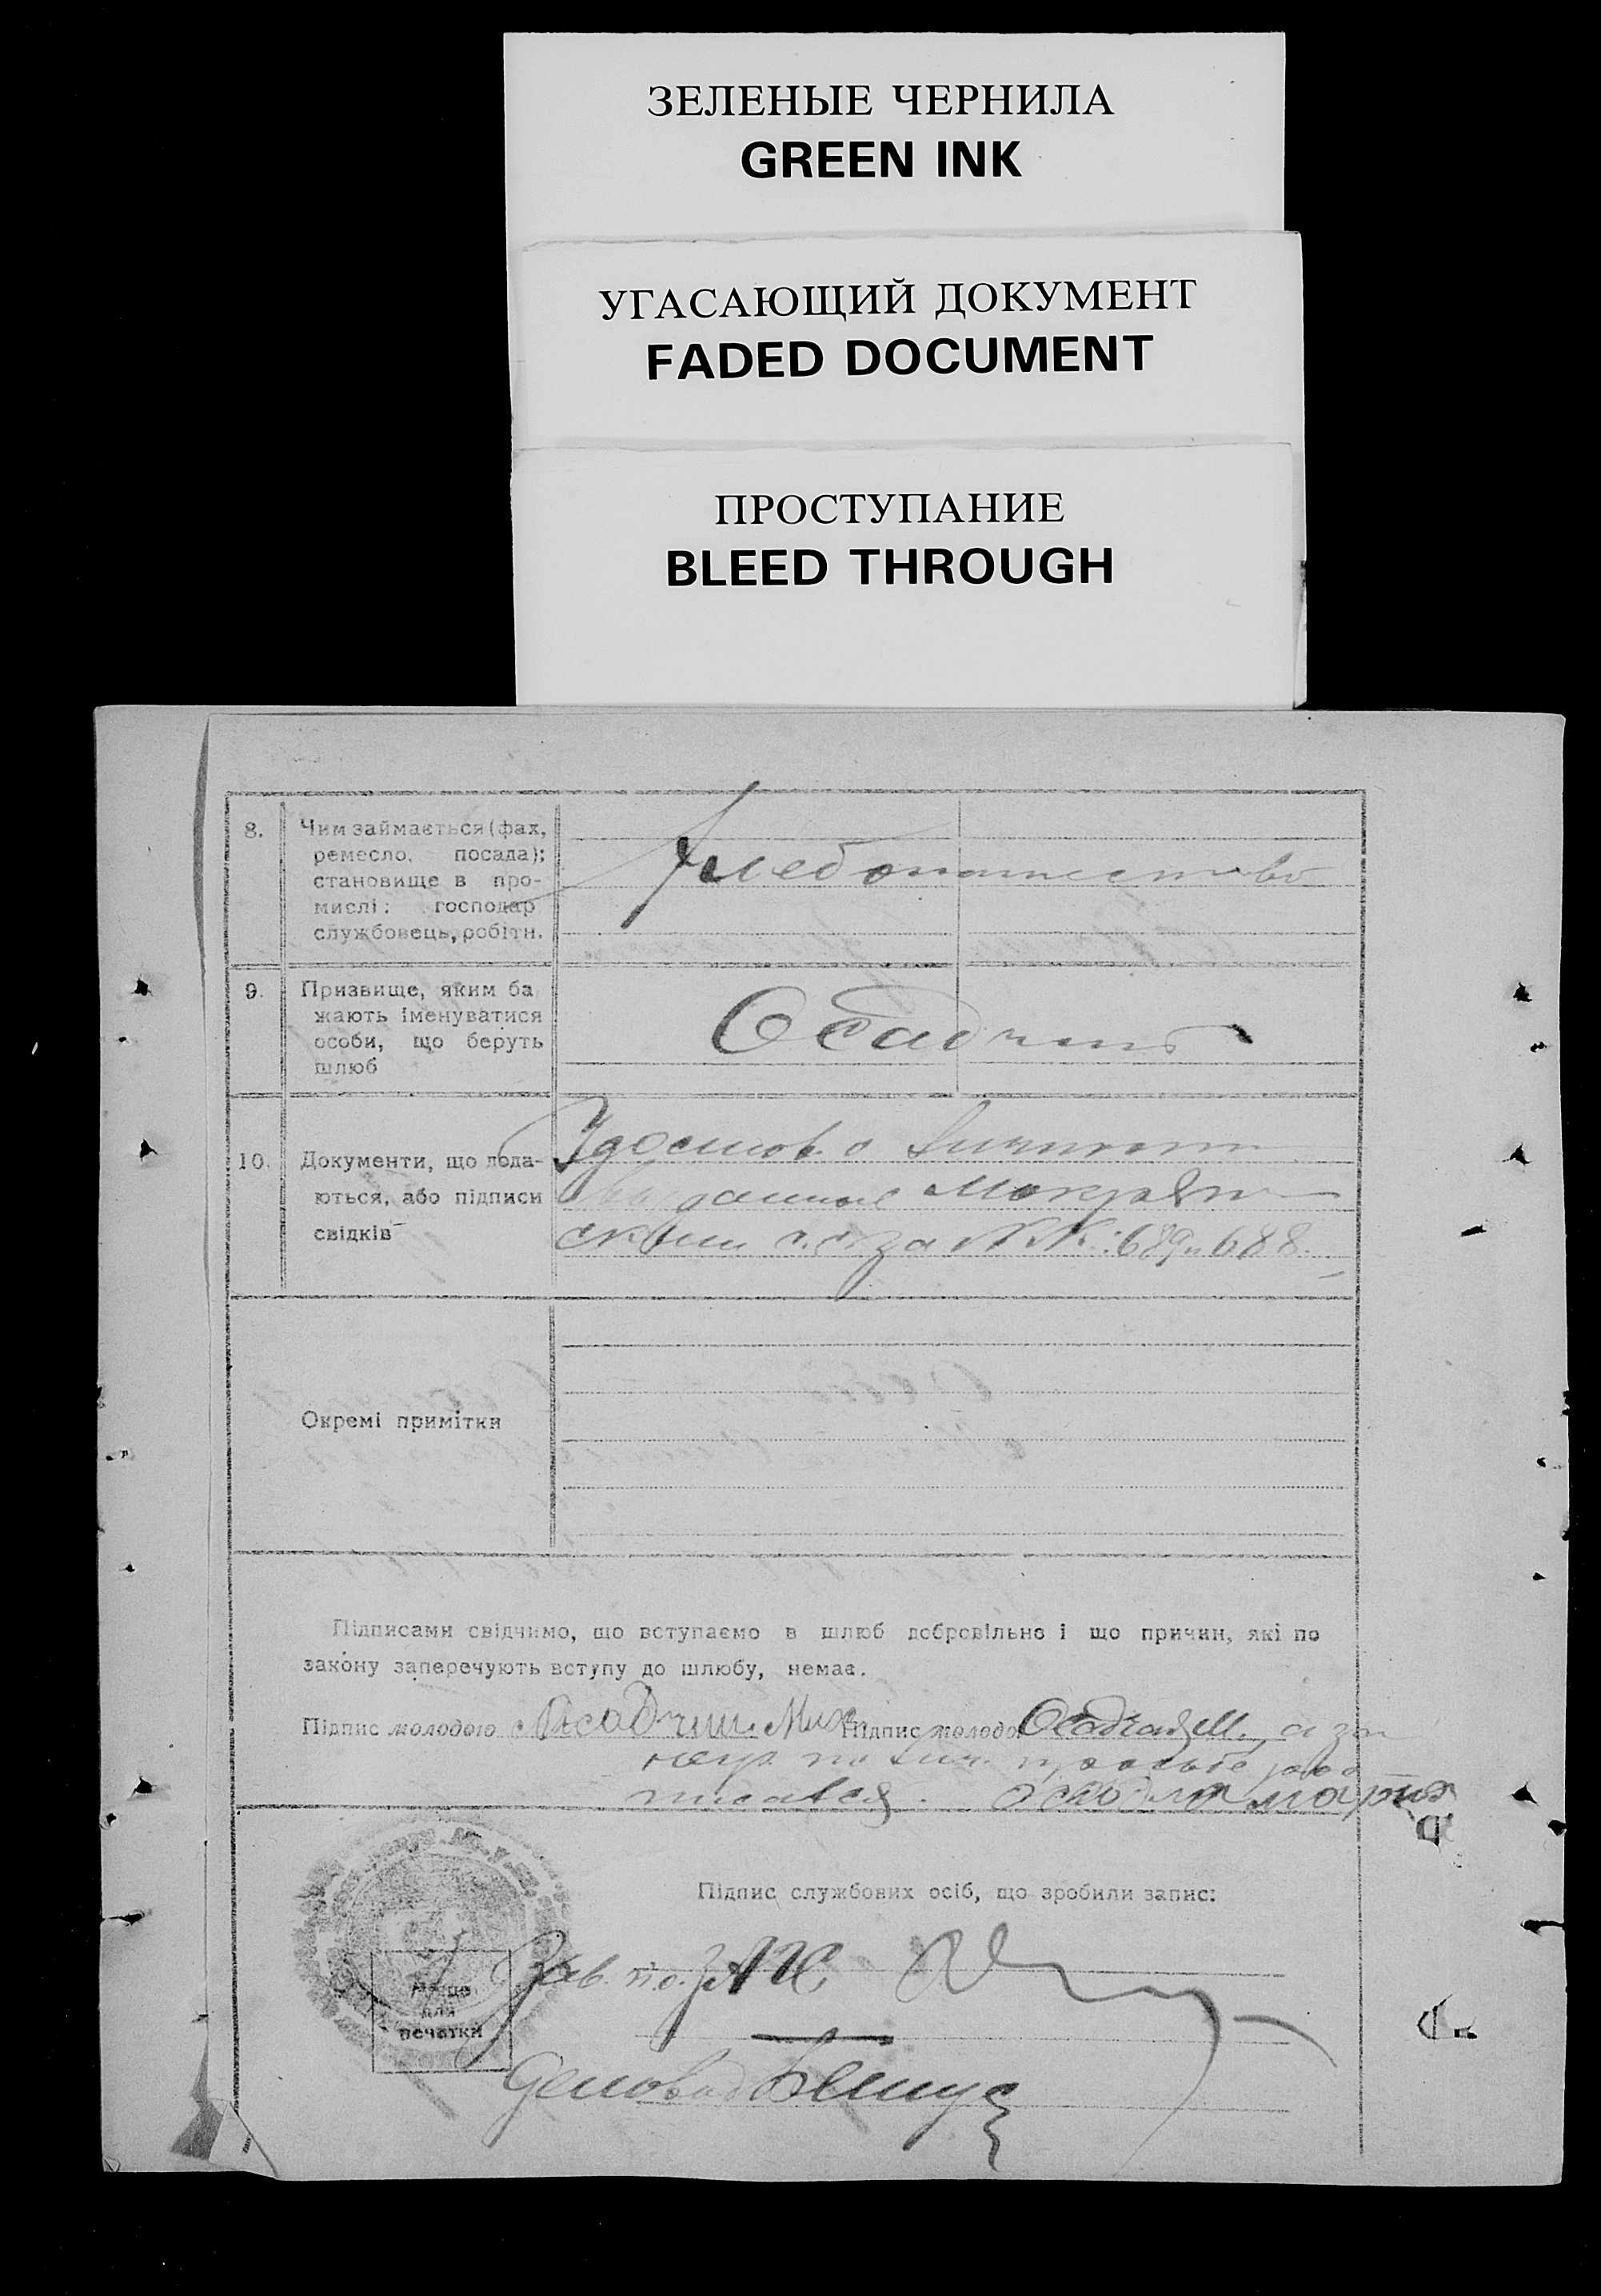 ЗЕЛЕНЫЕ ЧЕРНИЛА
GREEN INK
УГАСАЮЩИЙ ДОКУМЕНТ
FADED DOCUMENT
ПРОСТУПАНИЕ
BLEED THROUGH
8. Чим займається (фах,
ремесло, посада);
становище в про-
мислі: господар
службовець, робітн.
Хлебопашество
9. Призвище, яким ба
жають іменуватися
особи, що беруть
шлюб
Осадчий
10. Документи, що пода-
ються, або підписи
свідків
Удостов. о личности
выданные
за №№: 689 и 688.
Окремі примітки
Підписами свідчимо, що вступаємо в шлюб добровільно і що причин, які по
закону заперечують вступу до шлюбу, немає.
Підпис молодого Осадчий Мих Підпис молодої Осадчая М., а за
негр. по лич. просьбе рас
писался.
Підпис службових осіб, що зробили запис:
Зав. п/о. ЗАГС
Місце
для
печатки
Деловод